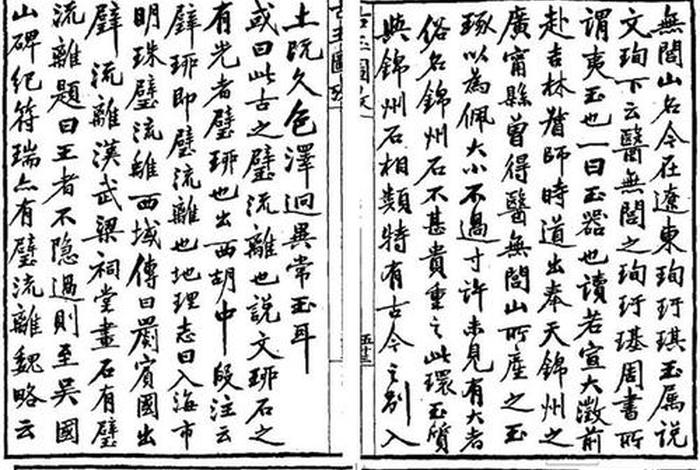 無閭山名今在遼東珣玗琪玉属說
文珣下云醫無閭之珣玗璂周書所
謂夷玉也一曰玉器也讀若宣大澂前
赴吉林督師時道出奉天錦州之
廣甯縣曾得醫無閭山所產之玉
琢以為佩大小不過寸許未見有大者
俗名錦州石不甚貴重之此環玉質
與錦州石相類特有古今之别入
古玉圖攷
五十三
土既久色澤迥異常玉耳
或曰此古之璧流離也說文珋石之
有光者璧珋也出西胡中段注云
璧珋即璧流離也地理志曰入海市
明珠璧流離西域傳曰罽賓國出
璧流離漢武梁祠堂畫石有璧
流離題曰王者不隐過則至吳國
山碑紀符瑞亦有璧流離魏略云